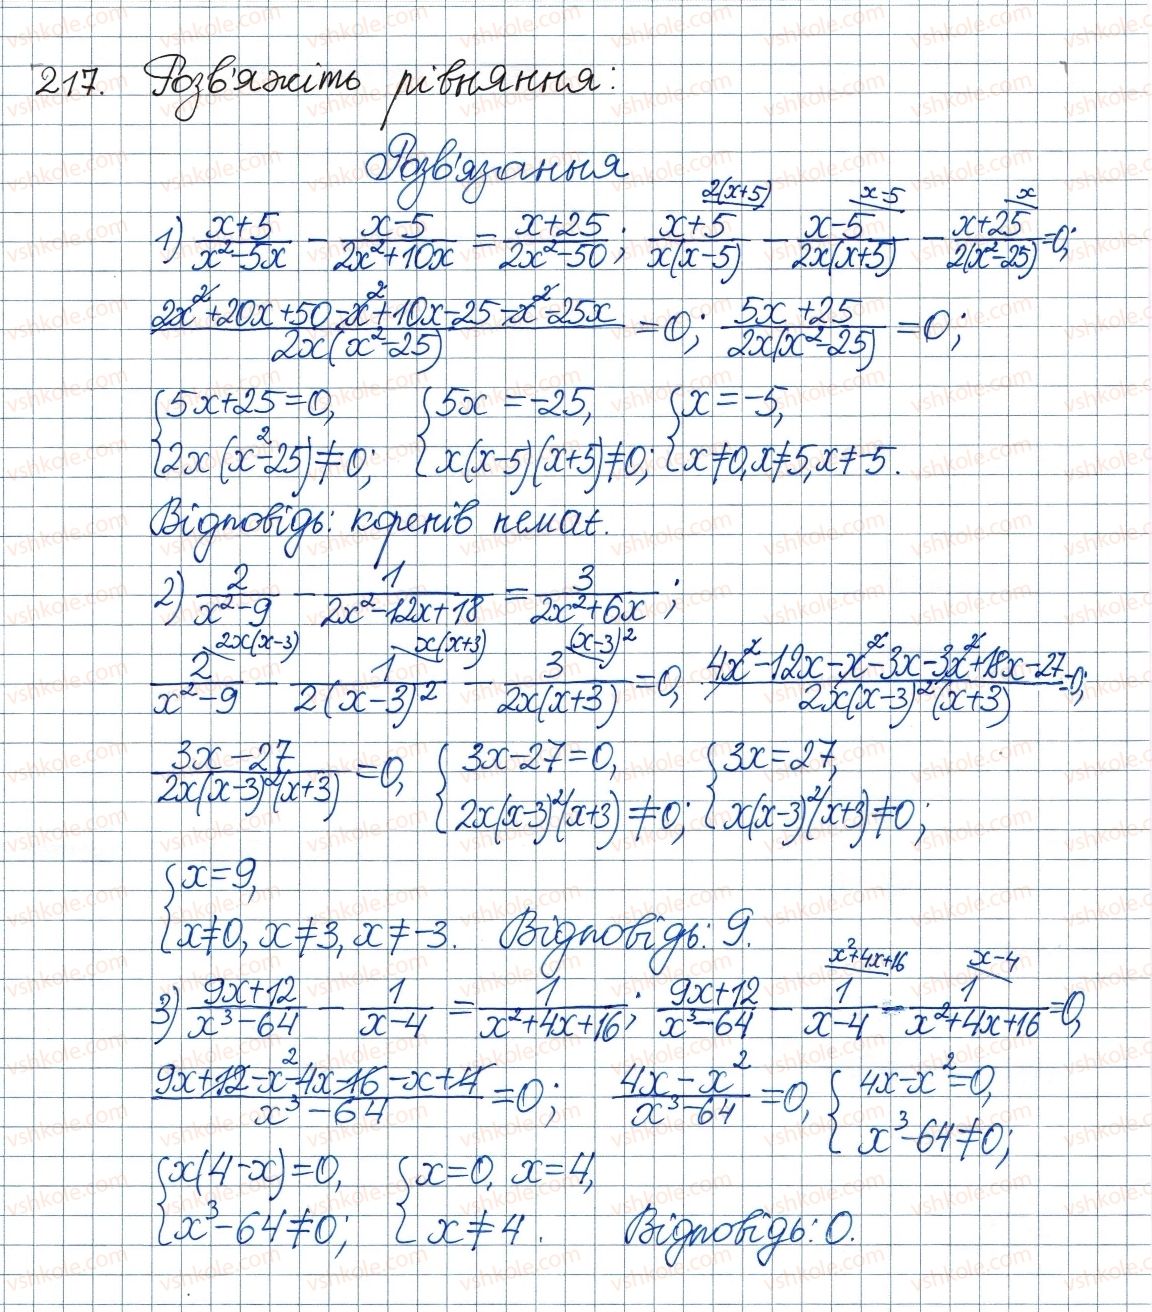 217. Розв'яжіть рівняння:
Розв'язання
1) (x+5)/(x²-5x) - (x-5)/(2x²+10x) = (x+25)/(2x²-50); (x+5)/(x(x-5)) ^2(x+5) - (x-5)/(2x(x+5)) ^x-5 - (x+25)/(2(x²-25)) ^x =0;
(2x²+20x+50-x²+10x-25-x²-25x)/(2x(x²-25)) =0; (5x+25)/(2x(x²-25)) =0;
{5x+25=0, {5x=-25, {x=-5,
2x(x²-25)≠0; x(x-5)(x+5)≠0; x≠0, x≠5, x≠-5.
Відповідь: коренів немає.
2) 2/(x²-9) - 1/(2x²-12x+18) = 3/(2x²+6x);
2/(x²-9) ^2x(x-3) - 1/(2(x-3)²) ^x(x+3) - 3/(2x(x+3)) ^(x-3)² =0, (4x²-12x-x²-3x-3x²+18x-27)/(2x(x-3)²(x+3)) =0;
(3x-27)/(2x(x-3)²(x+3)) =0, {3x-27=0, {3x=27,
2x(x-3)²(x+3)≠0; x(x-3)²(x+3)≠0;
{x=9,
x≠0, x≠3, x≠-3. Відповідь: 9.
3) (9x+12)/(x³-64) - 1/(x-4) = 1/(x²+4x+16); (9x+12)/(x³-64) - 1/(x-4) ^x²+4x+16 - 1/(x²+4x+16) ^x-4 =0,
(9x+12-x²-4x-16-x+4)/(x³-64) =0; (4x-x²)/(x³-64) =0, {4x-x²=0,
x³-64≠0;
{x(4-x)=0, {x=0, x=4,
x³-64≠0; x≠4. Відповідь: 0.
vshkole.com